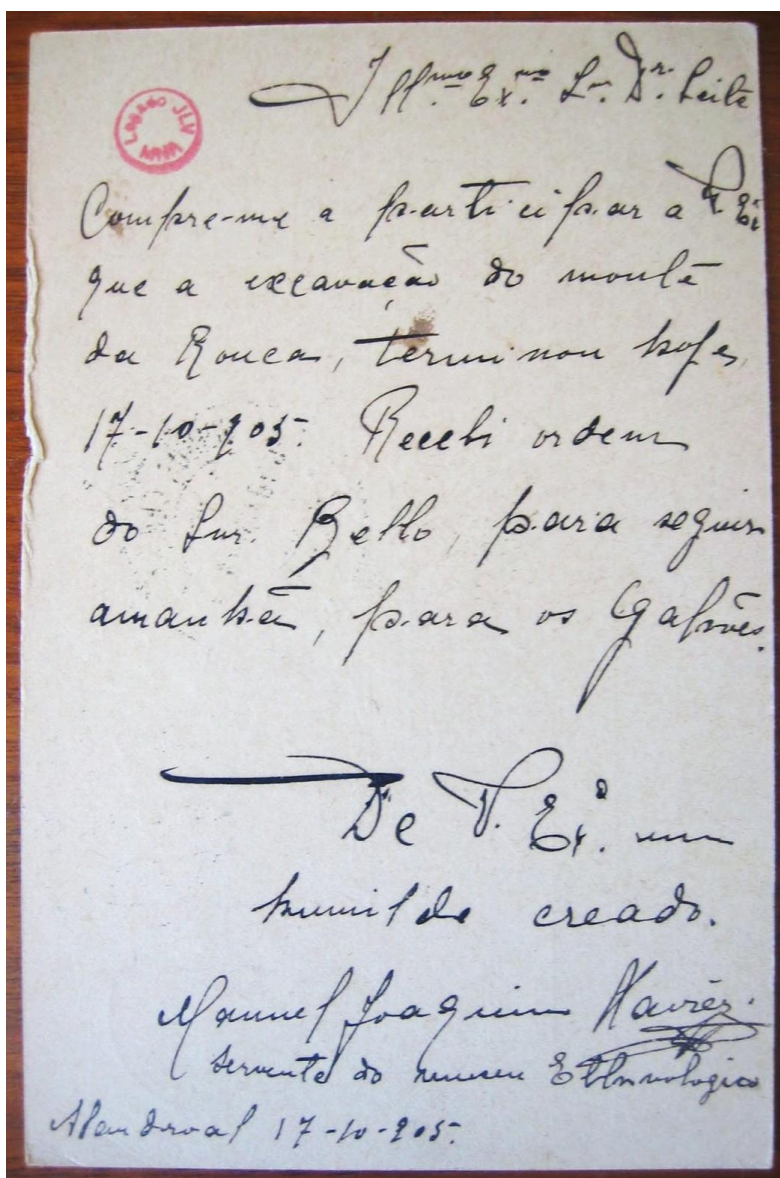 LEGADO JLV
MNA
Illmo. Exmo. Snr. Dr. Leite
Compre-me a participar a V. Ex
que a excavação do monte
da Rouca, terminou hoje,
17-10-905. Recebi ordem
do Snr. Bello, para seguir
amanhã, para os Galvões.
De V. Exa. um
humilde creado.
Manuel Joaquim
Servente do museu Ethnologico
Alandroal 17-10-905.